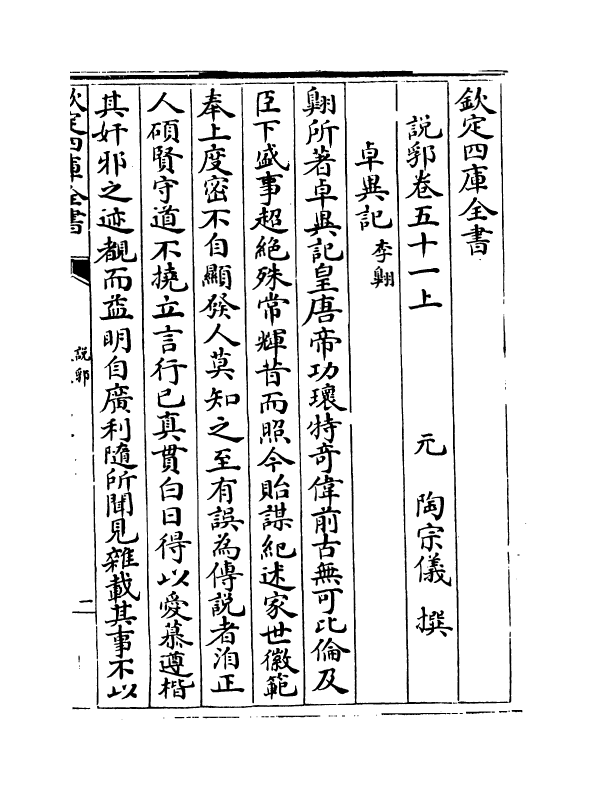 欽定四庫全書
說郛卷五十一上
元 陶宗儀 撰
卓異記 李翺
翺所著卓異記皇唐帝功瓌特奇偉前古無可比倫及
臣下盛事超絶殊常輝昔而照今貽謀紀述家世徽範
奉上度密不自顯發人莫知之至有誤為傳說者洎正
人碩賢守道不撓立言行已真貫白日得以愛慕遵楷
其奸邪之迹覩而益明自廣利隨所聞見雜載其事不以
欽定四庫全書
說郛
一